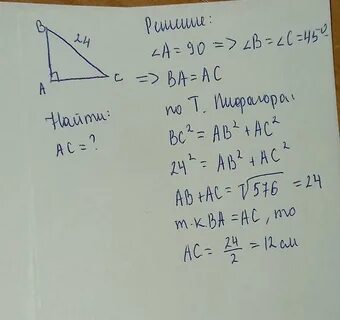 Решение:
B
24
∠A = 90 => ∠B = ∠C = 45°
A
C
=> BA = AC
Найти:
AC = ?
по Т. Пифагора:
BC² = AB² + AC²
24² = AB² + AC²
AB + AC = √576 = 24
т.к. BA = AC, то
AC = 24/2 = 12 см